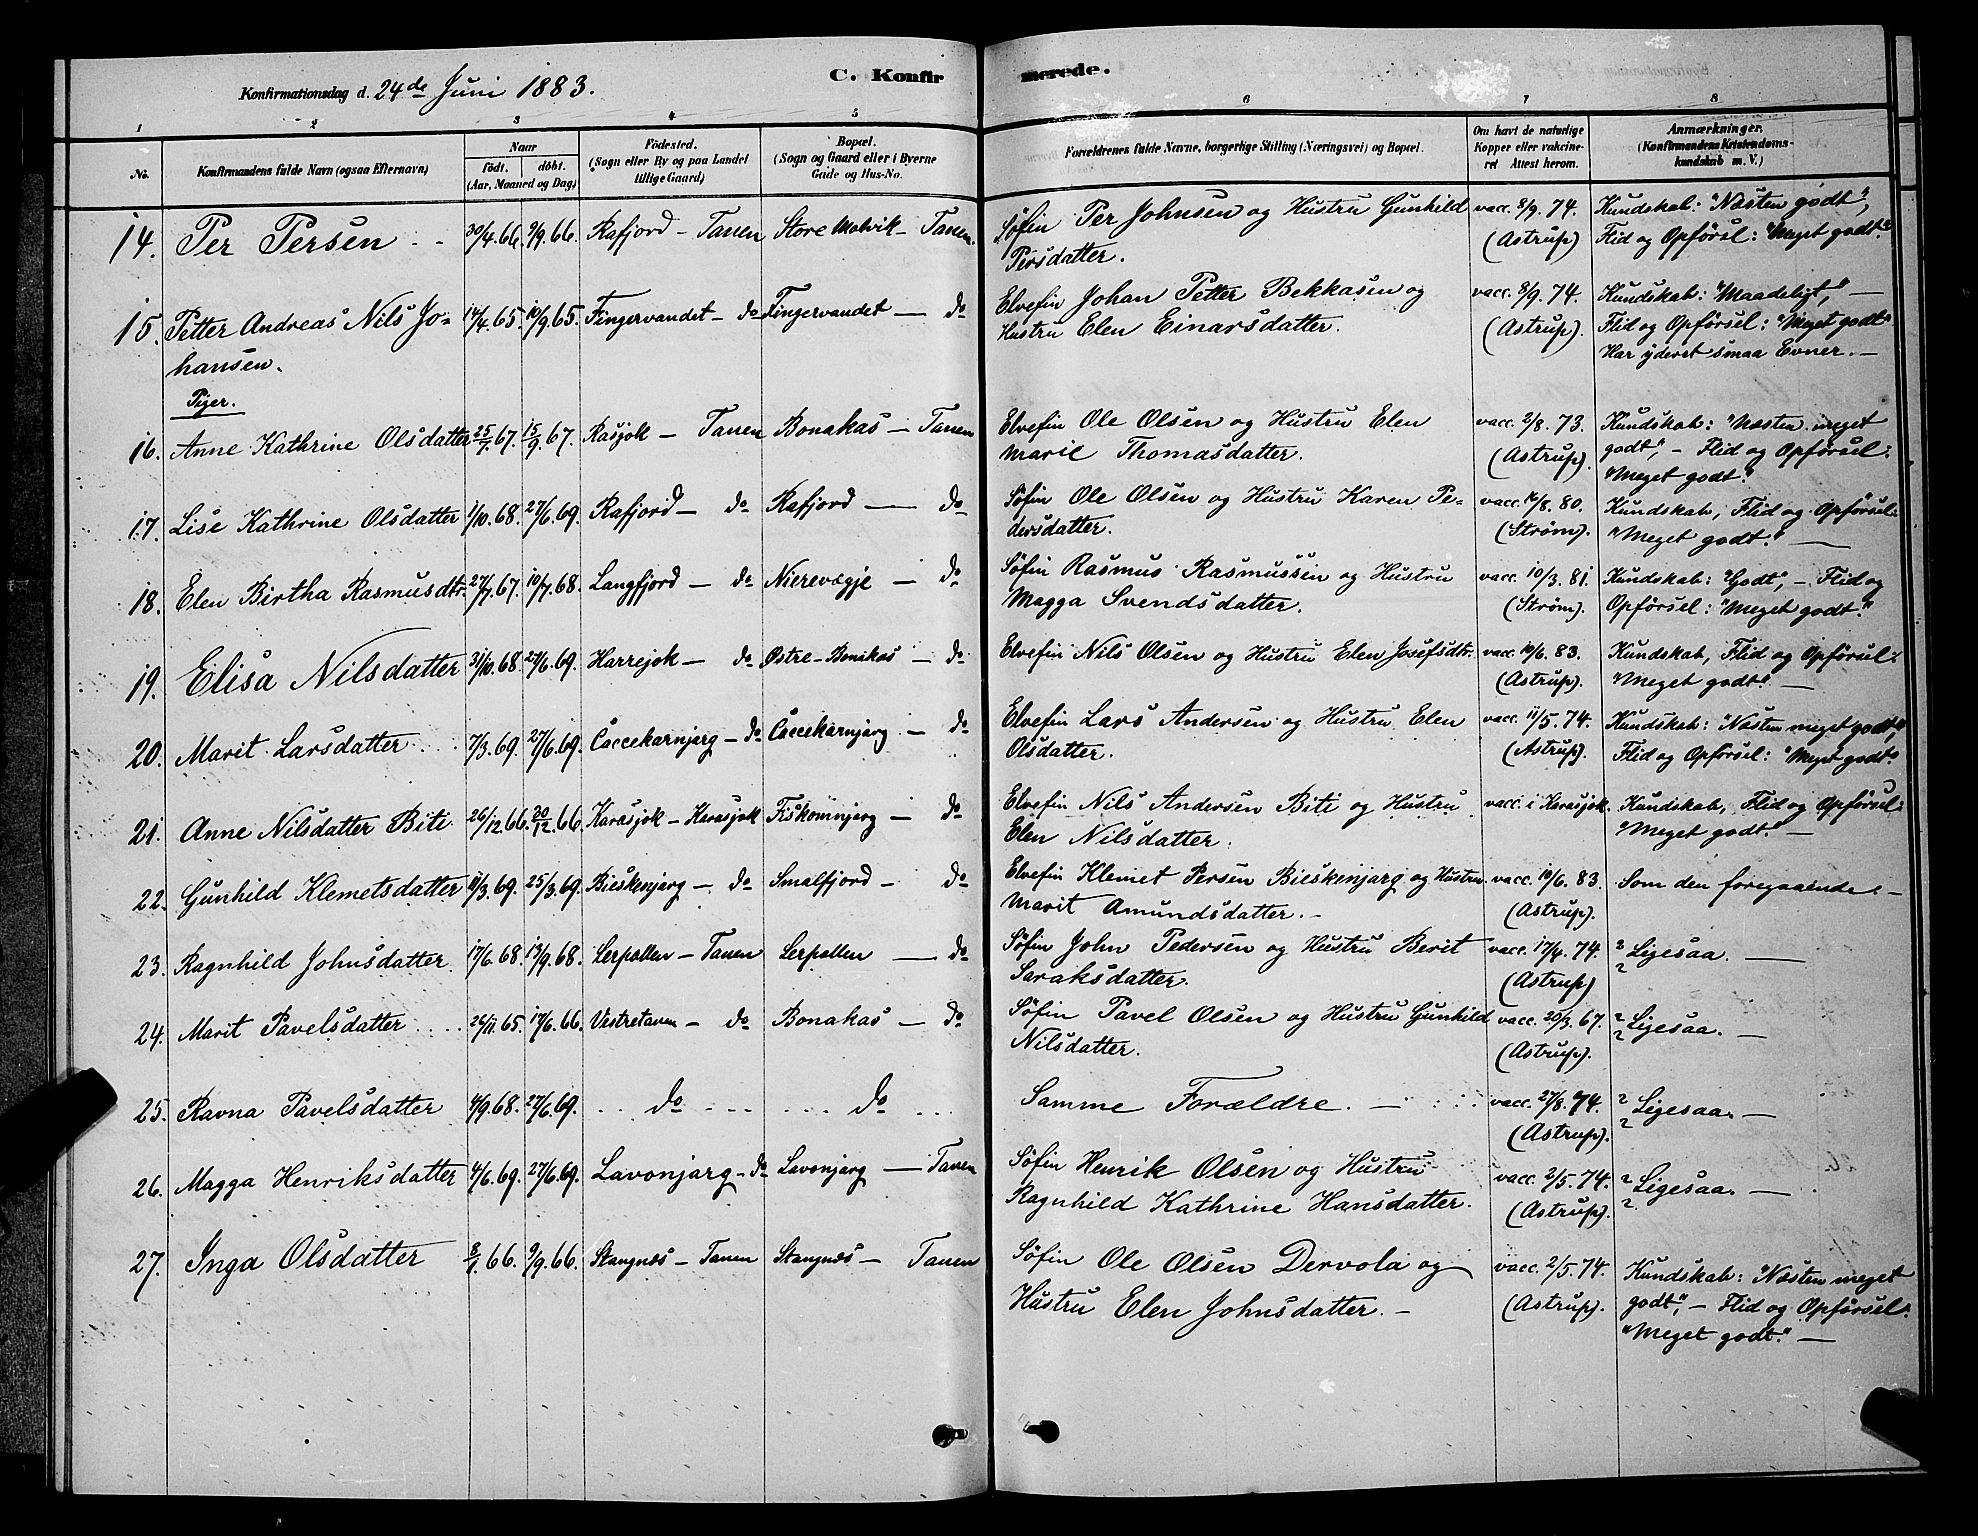 C. Konfirmerede.
Konfirmationsdag d. 24de Juni 1883.
1 2 3 4 5 6 7 8
No. Konfirmandens fulde Navn (ogsaa Efternavn) Naar født. døbt. (Aar, Maaned og Dag) Fødested. (Sogn eller By og paa Landet tillige Gaard) Bopæl. (Sogn og Gaard eller i Byerne Gade og Hus-No. Forældrenes fulde Navne, borgerlige Stilling (Næringsvei) og Bopæl. Om havt de naturlige Kopper eller vaccineret Attest herom. Anmærkninger. (Konfirmandens Kristendomskundskab m. V.)
14. Per Persen 30/4.66. 9/9.66. Rafjord - Tanen Store Molvik - Tanen. Søfin Per Johnsen og Hustru Gunhild vacc. 8/9. 74. Kundskab: "Næsten godt",
Persdatter. (Astrup) Flid og Opførsl: "Meget godt".
15. Petter Andreas Nils Jo- 14/4.65. 10/9.65. Fingervandet - do Fingervandet - do Elvefin Johan Petter Bekkasen og vacc. 8/9. 74. Kundskab: "Maadeligt", -
hansen. Hustru Elen Einarsdatter. (Astrup). Flid og Opførsel: "Meget godt".
Har yderet smaa Evner. -
Piger.
16. Anne Kathrine Olsdatter 25/7.67. 15/9.67. Rasjok - Tanen Bonakas - Tanen Elvefin Ole Olsen og Hustru Elen vacc. 2/8. 73. Kundskab: "Næsten meget
Marie Thomasdatter. (Astrup). godt", - Flid og Opførsel:
"Meget godt".
17. Lise Kathrine Olsdatter 1/10.68. 27/6.69. Rafjord - do Rafjord - do Søfin Ole Olsen og Hustru Karen Pe- vacc. 16/8. 80. Kundskab, Flid og Opførsel:
dersdatter. (Strøm). "Meget godt". -
18. Elen Birtha Rasmusdtr. 27/7.67. 10/7.68. Langfjord - do Nierevægje - do Søfin Rasmus Rasmussen og Hustru vacc. 10/3. 81. Kundskab: "Godt", - Flid og
Magga Svendsdatter. (Strøm). Opførsel: "Meget godt".
19. Elisa Nilsdatter 31/10.68. 27/6.69. Harrejok - do Østre-Bonakas - do Elvefin Nils Olsen og Hustru Elen Josefsdtr. vacc. 10/6. 83. Kundskab, Flid og Opførsel:
(Astrup). "Meget godt". -
20. Marit Larsdatter. 7/3.69. 27/6.69. Caccekarnjarg - do Caccekarnjarg - do Elvefin Lars Andersen og Hustru Elen vacc. 11/5. 74. Kundskab: "Næsten meget godt",
Olsdatter. (Astrup). Flid og Opførsel: "Meget godt".
21. Anne Nilsdatter Biti 26/12.66. 30/12.66. Karasjok - Karasjok Fiskominjarg - do Elvefin Nils Andersen Biti og Hustru vacc. i Karasjok. Kundskab, Flid og Opførsel:
Elen Nilsdatter. "Meget godt". -
22. Gunhild Klemetsdatter 11/3.69. 25/3.69. Bieskenjarg - do Smalfjord - do Elvefin Klemet Persen Bieskenjarg og Hustru vacc. 10/6. 83. Som den foregaaende. -
Marit Amundsdatter. - (Astrup).
23. Ragnhild Johnsdatter. 17/6.68. 13/9.68. Lerpollen - Tanen Lerpollen - do Søfin John Pedersen og Hustru Berit vacc. 17/4. 74. Ligesaa. -
Saraksdatter. (Astrup)
24. Marit Pavelsdatter 26/11.65. 17/6.66. Vestretanen - do Bonakas - do Søfin Pavel Olsen og Hustru Gunhild vacc. 20/3. 67. Ligesaa. -
Nilsdatter. (Astrup).
25. Ravna Pavelsdatter 4/9.68. 27/6.69. do do Samme Forældre. - vacc. 27/8. 74. Ligesaa. -
(Astrup).
26. Magga Henriksdatter 4/6.69. 27/6.69. Lavonjarg - do Lavonjarg - Tanen Søfin Henrik Olsen og Hustru vacc. 2/5. 74. Ligesaa. -
Ragnhild Kathrine Hansdatter. (Astrup).
27. Inga Olsdatter 9/9.66. Stangnæs - Tanen Stangnæs - Tanen Søfin Ole Olsen Dervola og vacc. 2/5. 74. Kundskab: "Næsten meget
Hustru Elen Johnsdatter. - (Astrup). godt", - Flid og Opførsel:
"Meget godt". -